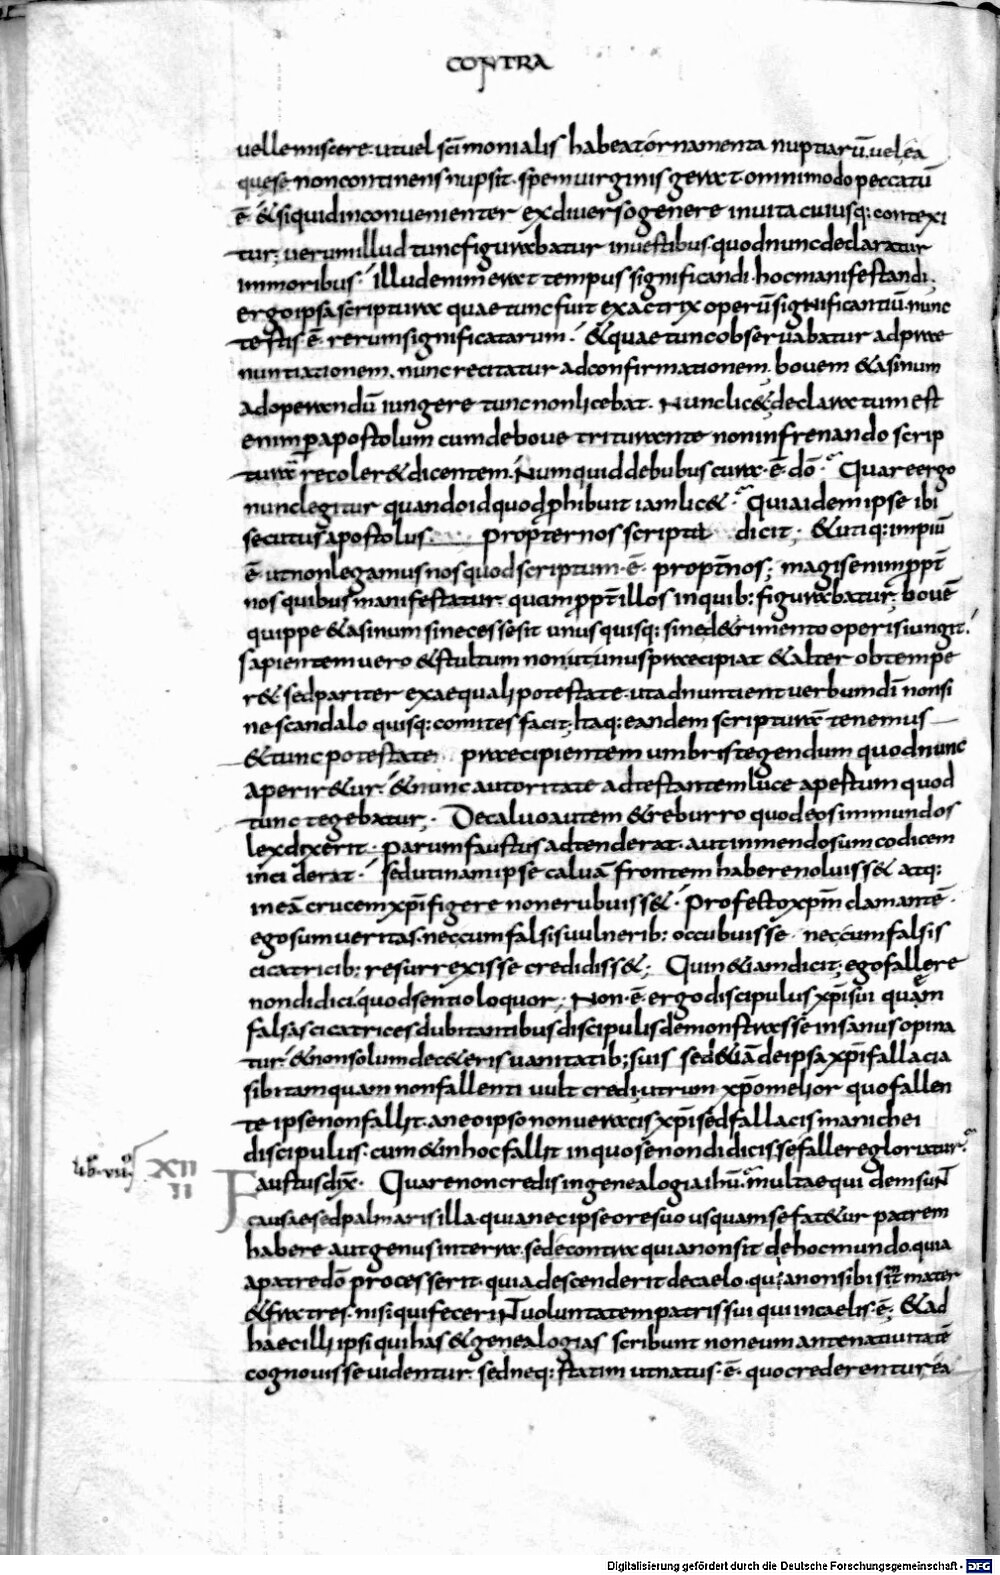 CONTRA
uelle miscere. ut uel sc̄imonialis habeat ornamenta nuptiarū. uel ea
quę se non continens nupsit. spem uirginis gerat omnimodo peccatū
ē & siquid inconuenienter ex diuerso genere in uita cuiusq: contexi
tur; uerum illud tunc figurabatur in uestibus. quod nunc declaratur
in moribus. illud enim erat tempus significandi. hoc manifestandi.
ergo ipsa scriptura quae tunc fuit exactrix operū significantiū. nunc
testis ē. rerum significatarum. & quae tunc obseruabatur ad prae
nuntiationem. nunc recitatur ad confirmationem. bouem & asinum
ad operandū iungere tunc non licebat. Nunc lic& declaratum est
enim p apostolum cum de boue triturante non infrenando scrip
turā recoler& dicentem. Numquid de bubus cura ē dō. Quare ergo
nunc legitur quando id quod phibuit iam lic&. Quia idem ipse ibi
secutus apostolus propter nos scriptū dicit; & utiq: impiū
ē. ut non legamus nos quod scriptum ē. propt̄ nos; magis enim ppt̄
nos quibus manifestatur. quam ppt̄ illos in quib: figurabatur; bouē
quippe & asinum si necesse sit unusquisq: sine d&rimento operis iungit.
sapientem uero & stultum non ut unus praecipiat & alter obtempe
r& sed pariter ex aequali potestate. ut adnuntient uerbum dī non si
ne scandalo quisq: comites facit; Itaq: eandem scripturā tenemus
& tunc potestate praecipientem umbris tegendum quod nunc
aperir&ur. & nunc autoritate adtestantem luce apertum quod
tunc tegebatur; De caluo autem & reburro quod eos inmundos
lex dixerit. parum faustus adtenderat. aut in mendosum codicem
inciderat. sed utinam ipse caluā frontem habere noluiss& atq:
in eā crucem xp̄i figere non erubuiss&. Profecto xp̄m clamantē.
ego sum ueritas. nec cum falsis uulnerib: occubuisse. nec cum falsis
cicatricib: resurrexisse credidiss&; Quin &iam dicit; ego fallere
non didici. quod sentio loquor; Non ē ergo discipulus xp̄i sui quam
falsas cicatrices dubitantibus discipulis demonstrasse insanus opina
tur. & non solum de c&eris uanitatib: suis sed &iā de ipsa xp̄i fallacia
sibi tamquam non fallenti uult credi; utrum xp̄o melior quo fallen
te ipse non fallit. an eo ipso non ueracis xp̄i sed fallacis manichei
discipulus. cum & in hoc fallit in quo se non didicisse fallere gloriatur.
lib. VII XII
II
Faustus dix̄. Quare non credis in genealogia ihū. multae quidem suNT
causae sed palmaris illa. quia nec ipse ore suo usquam se fat&ur patrem
habere aut genus in terra. sed e contra quia non sit de hoc mundo. quia
a patre dō processerit. quia descenderit de caelo. quia non sibi sint mater
& fratres. nisi qui feceriNT uoluntatem patris sui qui in caelis ē; & ad
haec illi ipsi qui has & genealogias scribunt non eum ante natiuitatē
cognouisse uidentur. sed neq: statim ut natus ē. quo crederentur ea
Digitalisierung gefördert durch die Deutsche Forschungsgemeinschaft - DFG